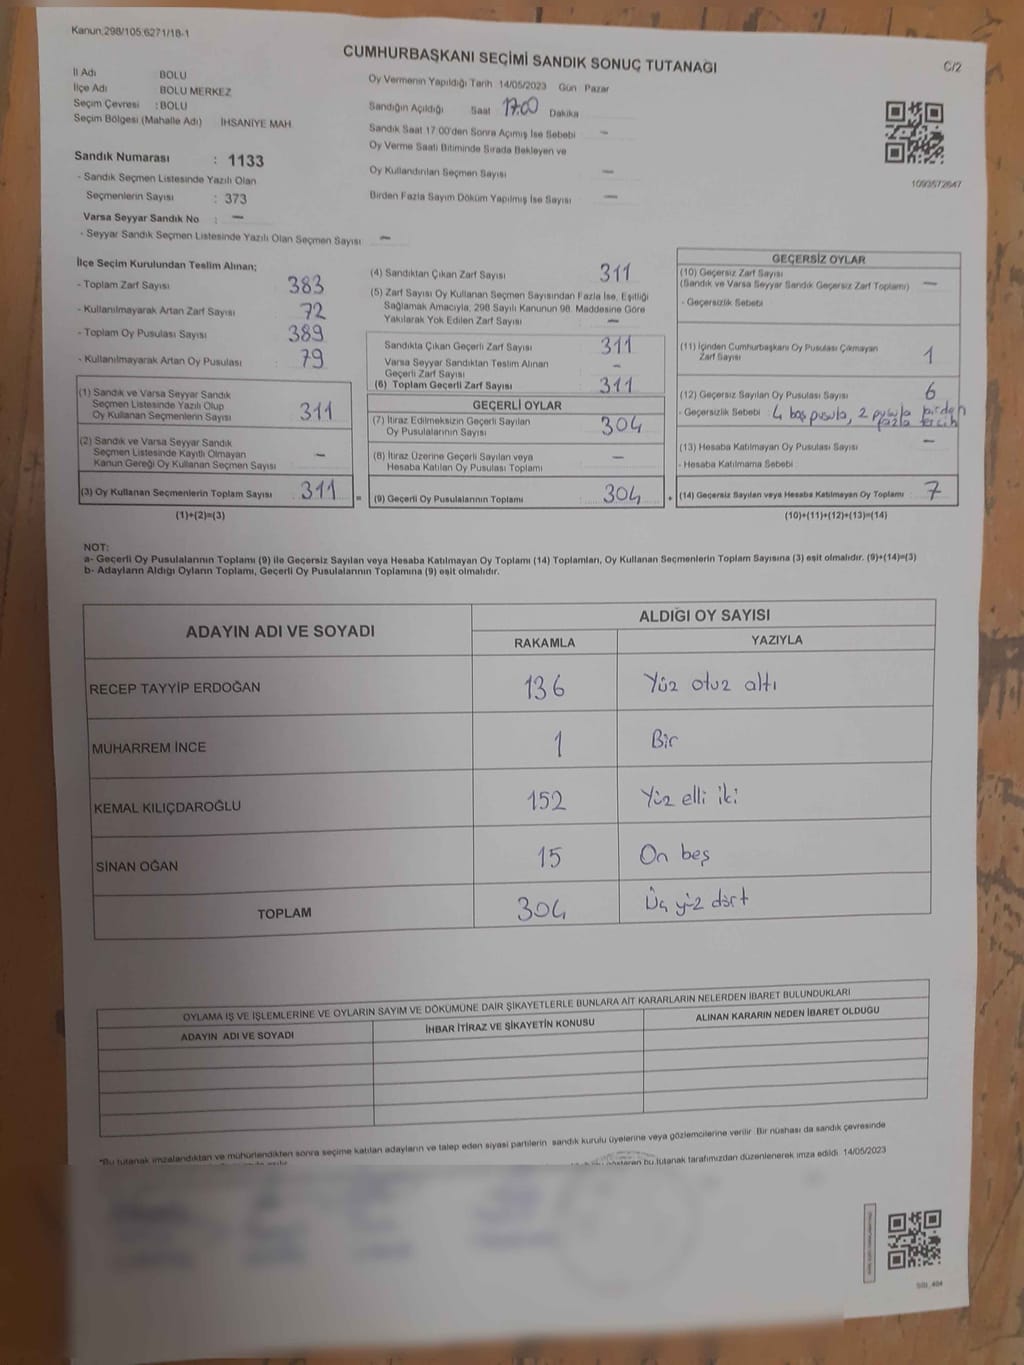 Kanun:298/105;6271/18-1
CUMHURBAŞKANI SEÇİMİ SANDIK SONUÇ TUTANAĞI
C/2
İl Adı BOLU
İlçe Adı BOLU MERKEZ
Seçim Çevresi : BOLU
Seçim Bölgesi (Mahalle Adı) İHSANİYE MAH.
Sandık Numarası : 1133
- Sandık Seçmen Listesinde Yazılı Olan
Seçmenlerin Sayısı : 373
Varsa Seyyar Sandık No : -
- Seyyar Sandık Seçmen Listesinde Yazılı Olan Seçmen Sayısı -
Oy Vermenin Yapıldığı Tarih 14/05/2023 Gün Pazar
Sandığın Açıldığı Saat 17:00 Dakika
Sandık Saat 17:00'den Sonra Açımış İse Sebebi -
Oy Verme Saati Bitiminde Sırada Bekleyen ve
Oy Kullandırılan Seçmen Sayısı -
Birden Fazla Sayım Döküm Yapılmış İse Sayısı -
1093572647
İlçe Seçim Kurulundan Teslim Alınan;
- Toplam Zarf Sayısı : 383
- Kullanılmayarak Artan Zarf Sayısı : 72
- Toplam Oy Pusulası Sayısı : 389
- Kullanılmayarak Artan Oy Pusulası : 79
(1) Sandık ve Varsa Seyyar Sandık
Seçmen Listesinde Yazılı Olup
Oy Kullanan Seçmenlerin Sayısı : 311
(2) Sandık ve Varsa Seyyar Sandık
Seçmen Listesinde Kayıtlı Olmayan
Kanun Gereği Oy Kullanan Seçmen Sayısı : -
(3) Oy Kullanan Seçmenlerin Toplam Sayısı : 311 =
(1)+(2)=(3)
(4) Sandıktan Çıkan Zarf Sayısı : 311
(5) Zarf Sayısı Oy Kullanan Seçmen Sayısından Fazla İse, Eşitliği
Sağlamak Amacıyla, 298 Sayılı Kanunun 98. Maddesine Göre
Yakılarak Yok Edilen Zarf Sayısı : -
Sandıkta Çıkan Geçerli Zarf Sayısı : 311
Varsa Seyyar Sandıktan Teslim Alınan
Geçerli Zarf Sayısı : -
(6) Toplam Geçerli Zarf Sayısı : 311
GEÇERLİ OYLAR
(7) İtiraz Edilmeksizin Geçerli Sayılan
Oy Pusulalarının Sayısı : 304
(8) İtiraz Üzerine Geçerli Sayılan veya
Hesaba Katılan Oy Pusulası Toplamı : -
(9) Geçerli Oy Pusulalarının Toplamı : 304 +
GEÇERSİZ OYLAR
(10) Geçersiz Zarf Sayısı
(Sandık ve Varsa Seyyar Sandık Geçersiz Zarf Toplamı) -
- Geçersizlik Sebebi
(11) İçinden Cumhurbaşkanı Oy Pusulası Çıkmayan
Zarf Sayısı : 1
(12) Geçersiz Sayılan Oy Pusulası Sayısı : 6
- Geçersizlik Sebebi : 4 boş pusula, 2 pusula birden
fazla tercih
(13) Hesaba Katılmayan Oy Pusulası Sayısı : -
- Hesaba Katılmama Sebebi :
(14) Geçersiz Sayılan veya Hesaba Katılmayan Oy Toplamı : 7
(10)+(11)+(12)+(13)=(14)
NOT:
a- Geçerli Oy Pusulalarının Toplamı (9) ile Geçersiz Sayılan veya Hesaba Katılmayan Oy Toplamı (14) Toplamları, Oy Kullanan Seçmenlerin Toplam Sayısına (3) eşit olmalıdır. (9)+(14)=(3)
b- Adayların Aldığı Oyların Toplamı, Geçerli Oy Pusulalarının Toplamına (9) eşit olmalıdır.
ADAYIN ADI VE SOYADI
ALDIĞI OY SAYISI
RAKAMLA YAZIYLA
RECEP TAYYİP ERDOĞAN 136 Yüz otuz altı
MUHARREM İNCE 1 Bir
KEMAL KILIÇDAROĞLU 152 Yüz elli iki
SİNAN OĞAN 15 On beş
TOPLAM 304 Üç yüz dört
OYLAMA İŞ VE İŞLEMLERİNE VE OYLARIN SAYIM VE DÖKÜMÜNE DAİR ŞİKAYETLERLE BUNLARA AİT KARARLARIN NELERDEN İBARET BULUNDUKLARI
ADAYIN ADI VE SOYADI İHBAR İTİRAZ VE ŞİKAYETİN KONUSU ALINAN KARARIN NEDEN İBARET OLDUĞU
*Bu tutanak imzalandıktan ve mühürlendikten sonra seçime katılan adayların ve talep eden siyasi partilerin sandık kurulu üyelerine veya gözlemcilerine verilir. Bir nüshası da sandık çevresinde
gösteren bu tutanak tarafımızdan düzenlenerek imza edildi. 14/05/2023